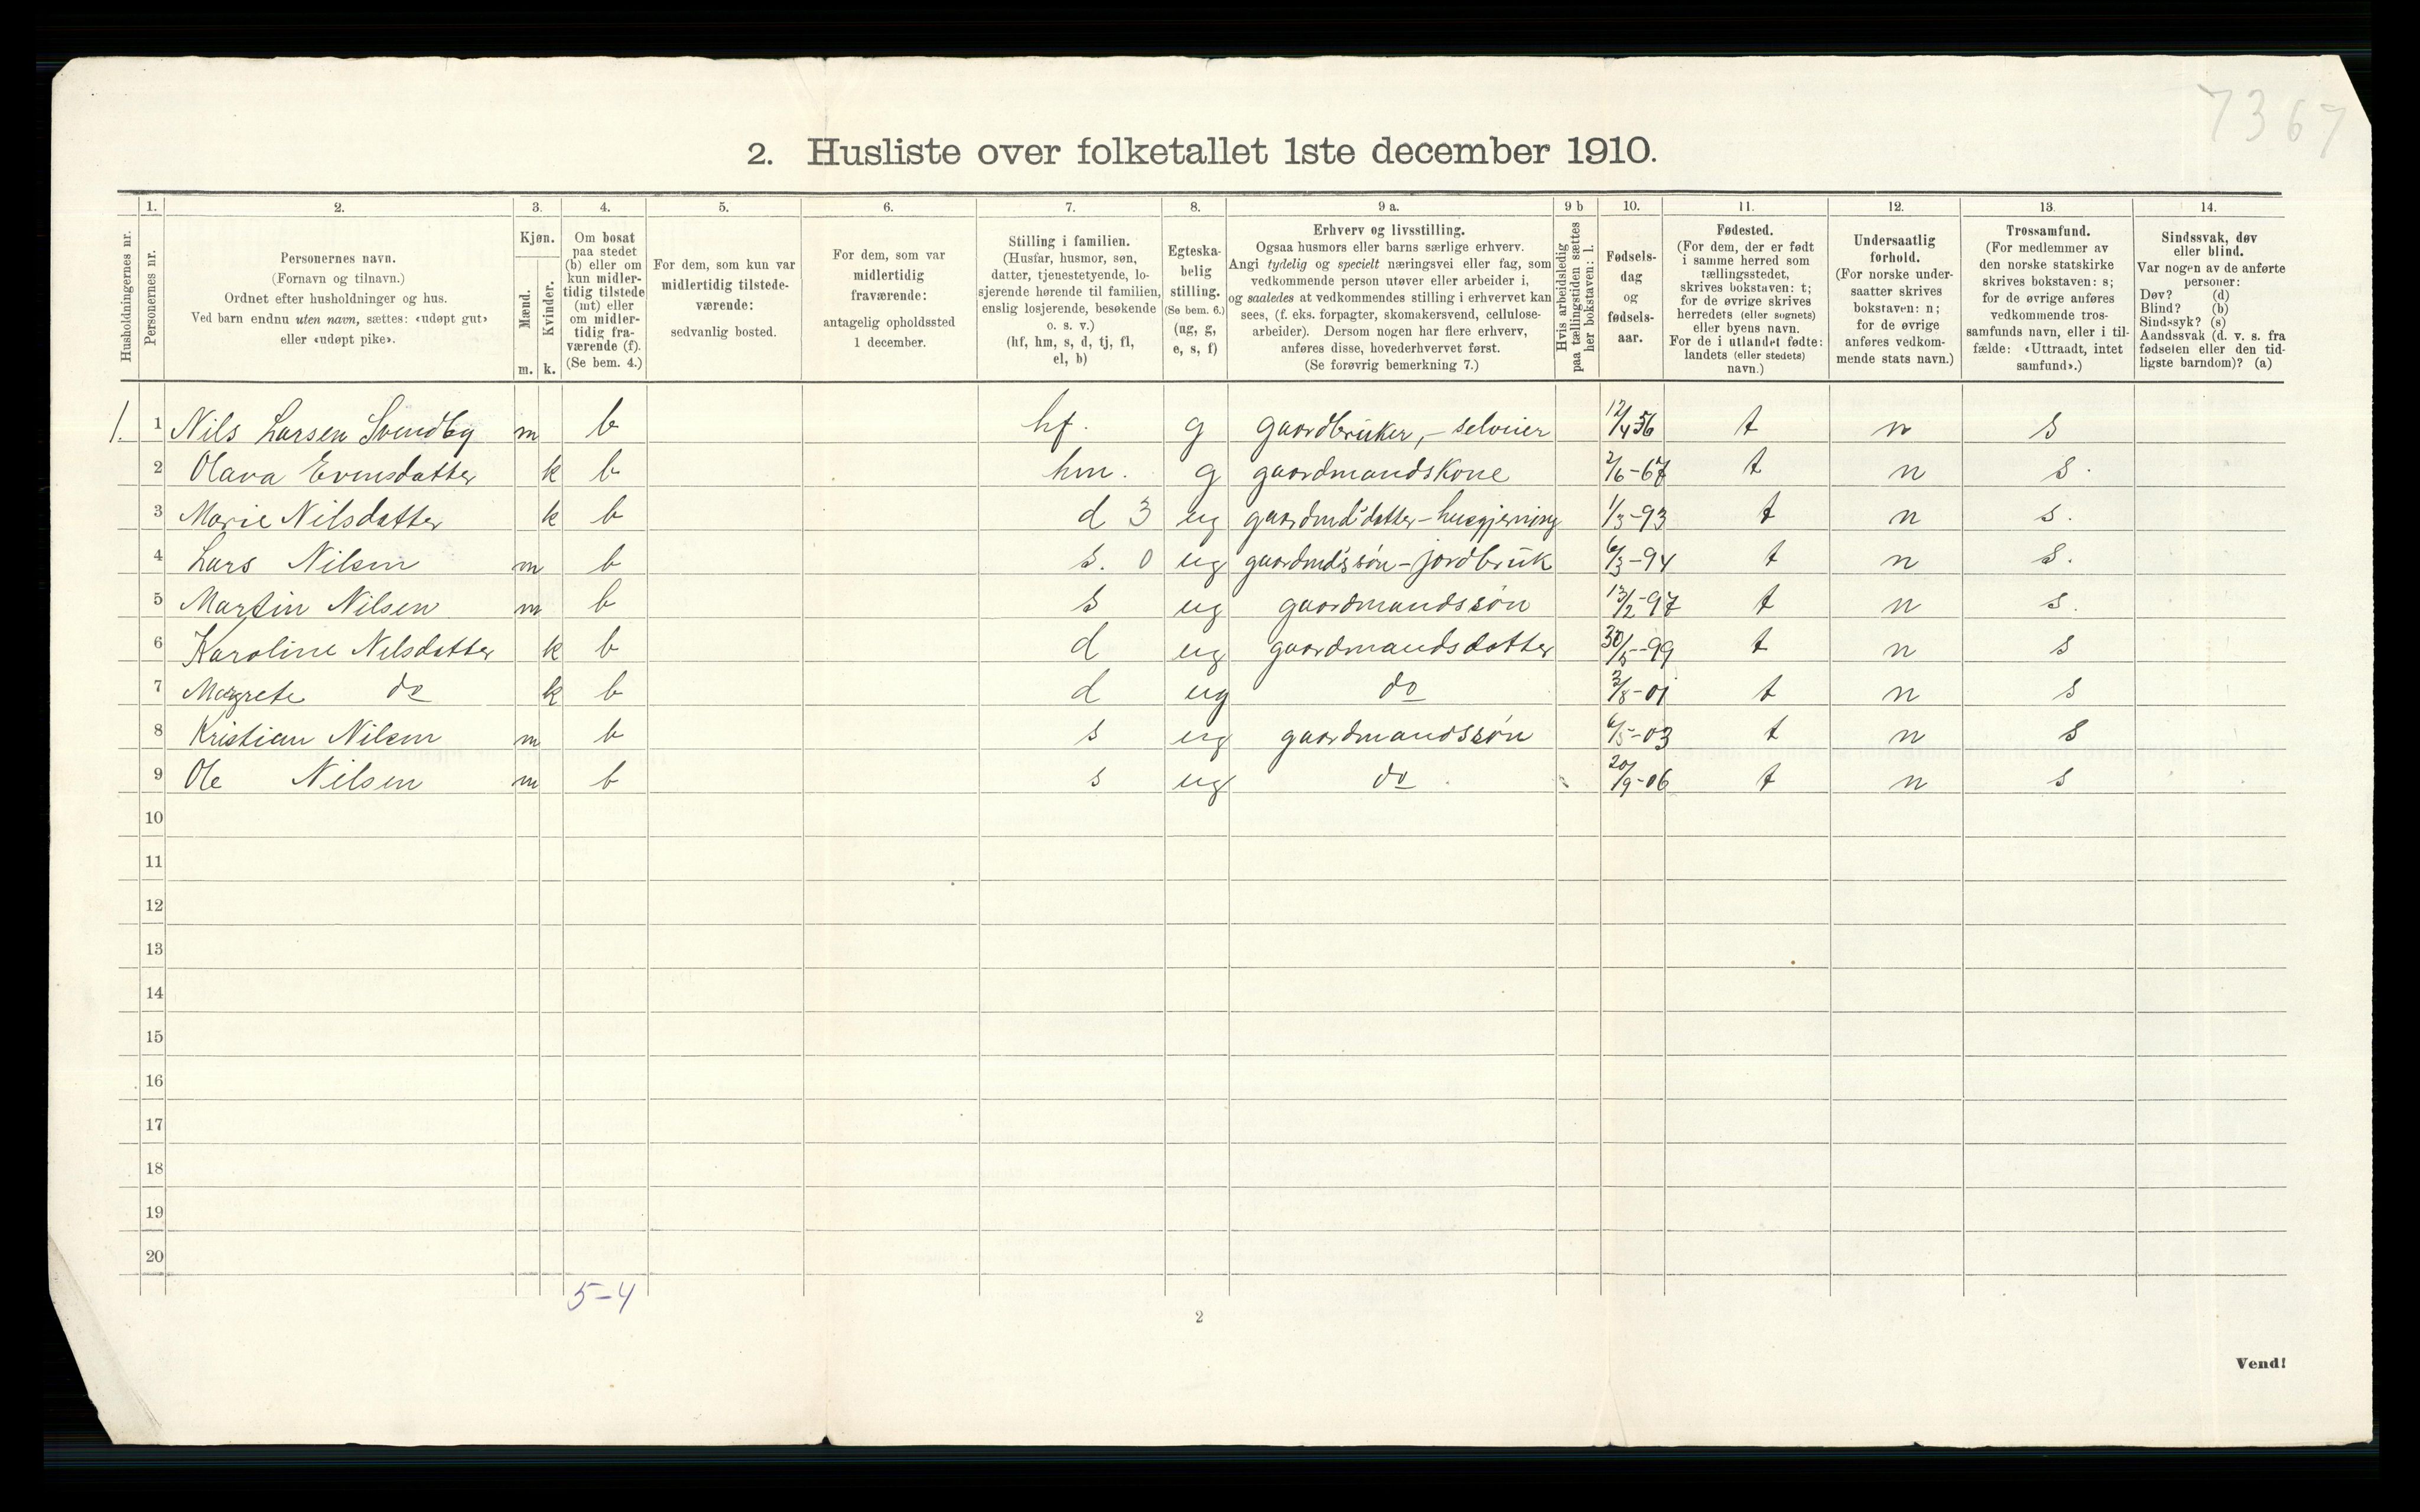 7367
2. Husliste over folketallet 1ste december 1910.
1. 2. 3. 4. 5. 6. 7. 8. 9 a. 9 b 10. 11. 12. 13. 14.
Husholdningernes nr.
Personernes nr.
Personernes navn.
(Fornavn og tilnavn.)
Ordnet efter husholdninger og hus.
Ved barn endnu uten navn, sættes: «udøpt gut»
eller «udøpt pike».
Kjøn.
Mænd.
Kvinder.
m. k.
Om bosat
paa stedet
(b) eller om
kun midler-
tidig tilstede
(mt) eller
om midler-
tidig fra-
værende (f).
(Se bem. 4.)
For dem, som kun var
midlertidig tilstede-
værende:
sedvanlig bosted.
For dem, som var
midlertidig
fraværende:
antagelig opholdssted
1 december.
Stilling i familien.
(Husfar, husmor, søn,
datter, tjenestetyende, lo-
sjerende hørende til familien,
enslig losjerende, besøkende
o. s. v.)
(hf, hm, s, d, tj, fl,
el, b)
Egteska-
belig
stilling.
(Se bem. 6.)
(ug, g,
e, s, f)
Erhverv og livsstilling.
Ogsaa husmors eller barns særlige erhverv.
Angi tydelig og specielt næringsvei eller fag, som
vedkommende person utøver eller arbeider i,
og saaledes at vedkommendes stilling i erhvervet kan
sees, (f. eks. forpagter, skomakersvend, cellulose-
arbeider). Dersom nogen har flere erhverv,
anføres disse, hovederhvervet først.
(Se forøvrig bemerkning 7.)
Hvis arbeidsledig
paa tællingstiden sættes
her bokstaven: l.
Fødsels-
dag
og
fødsels-
aar.
Fødested.
(For dem, der er født
i samme herred som
tællingsstedet,
skrives bokstaven: t;
for de øvrige skrives
herredets (eller sognets)
eller byens navn.
For de i utlandet fødte:
landets (eller stedets)
navn.)
Undersaatlig
forhold.
(For norske under-
saatter skrives
bokstaven: n;
for de øvrige
anføres vedkom-
mende stats navn.)
Trossamfund.
(For medlemmer av
den norske statskirke
skrives bokstaven: s;
for de øvrige anføres
vedkommende tros-
samfunds navn, eller i til-
fælde: «Uttraadt, intet
samfund».)
Sindssvak, døv
eller blind.
Var nogen av de anførte
personer:
Døv? (d)
Blind? (b)
Sindssyk? (s)
Aandssvak (d. v. s. fra
fødselen eller den tid-
ligste barndom)? (a)
1. 1 Nils Larsen Svendby m b hf. g gaardbruker, - selveier 12/4 56 t n s
2 Olava Evensdatter k b hm. g gaardmandskone 2/6-67 t n s.
3 Marie Nilsdatter k b d 3 ug gaardmds datter - husgjerning 1/3-93 t n s.
4 Lars Nilsen m b s. 0 ug gaardmds søn - jordbruk 6/3-94 t n s.
5 Martin Nilsen m b s ug gaardmandssøn 13/2-97 t n s.
6 Karoline Nilsdatter k b d ug gaardmandsdatter 30/5-99 t n s
7 Margrete do k b d ug do 3/8-01 t n s
8 Kristian Nilsen m b s ug gaardmandssøn 6/5-03 t n s
9 Ole Nilsen m b s ug do 20/9-06 t n s
10
11
12
13
14
15
16
17
18
19
20
5-4
2
Vend!